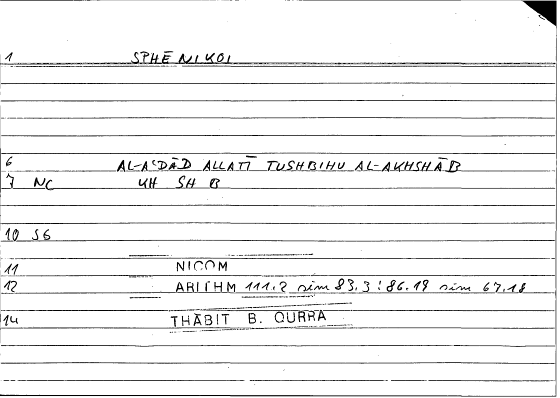 1 SPHĒNIKOI
6 AL-AʿDĀD ALLATĪ TUSHBIHU AL-AKHSHĀB
7 NC KH SH B
10 S6
11 NICOM
12 ARITHM 111.2 sim 83.3 : 86.19 sim 67.18
14 THĀBIT B. QURRA